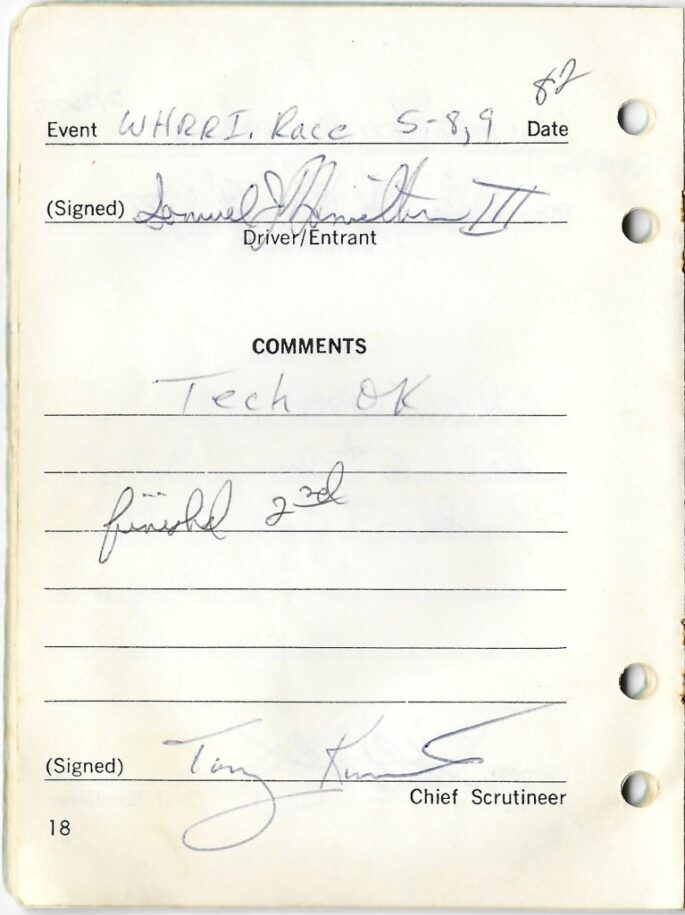 82
Event WHRRI. Race 5-8,9 Date
(Signed) Samuel J Hamilton III
Driver/Entrant
COMMENTS
Tech OK
finished 2nd
(Signed) Tony
Chief Scrutineer
18